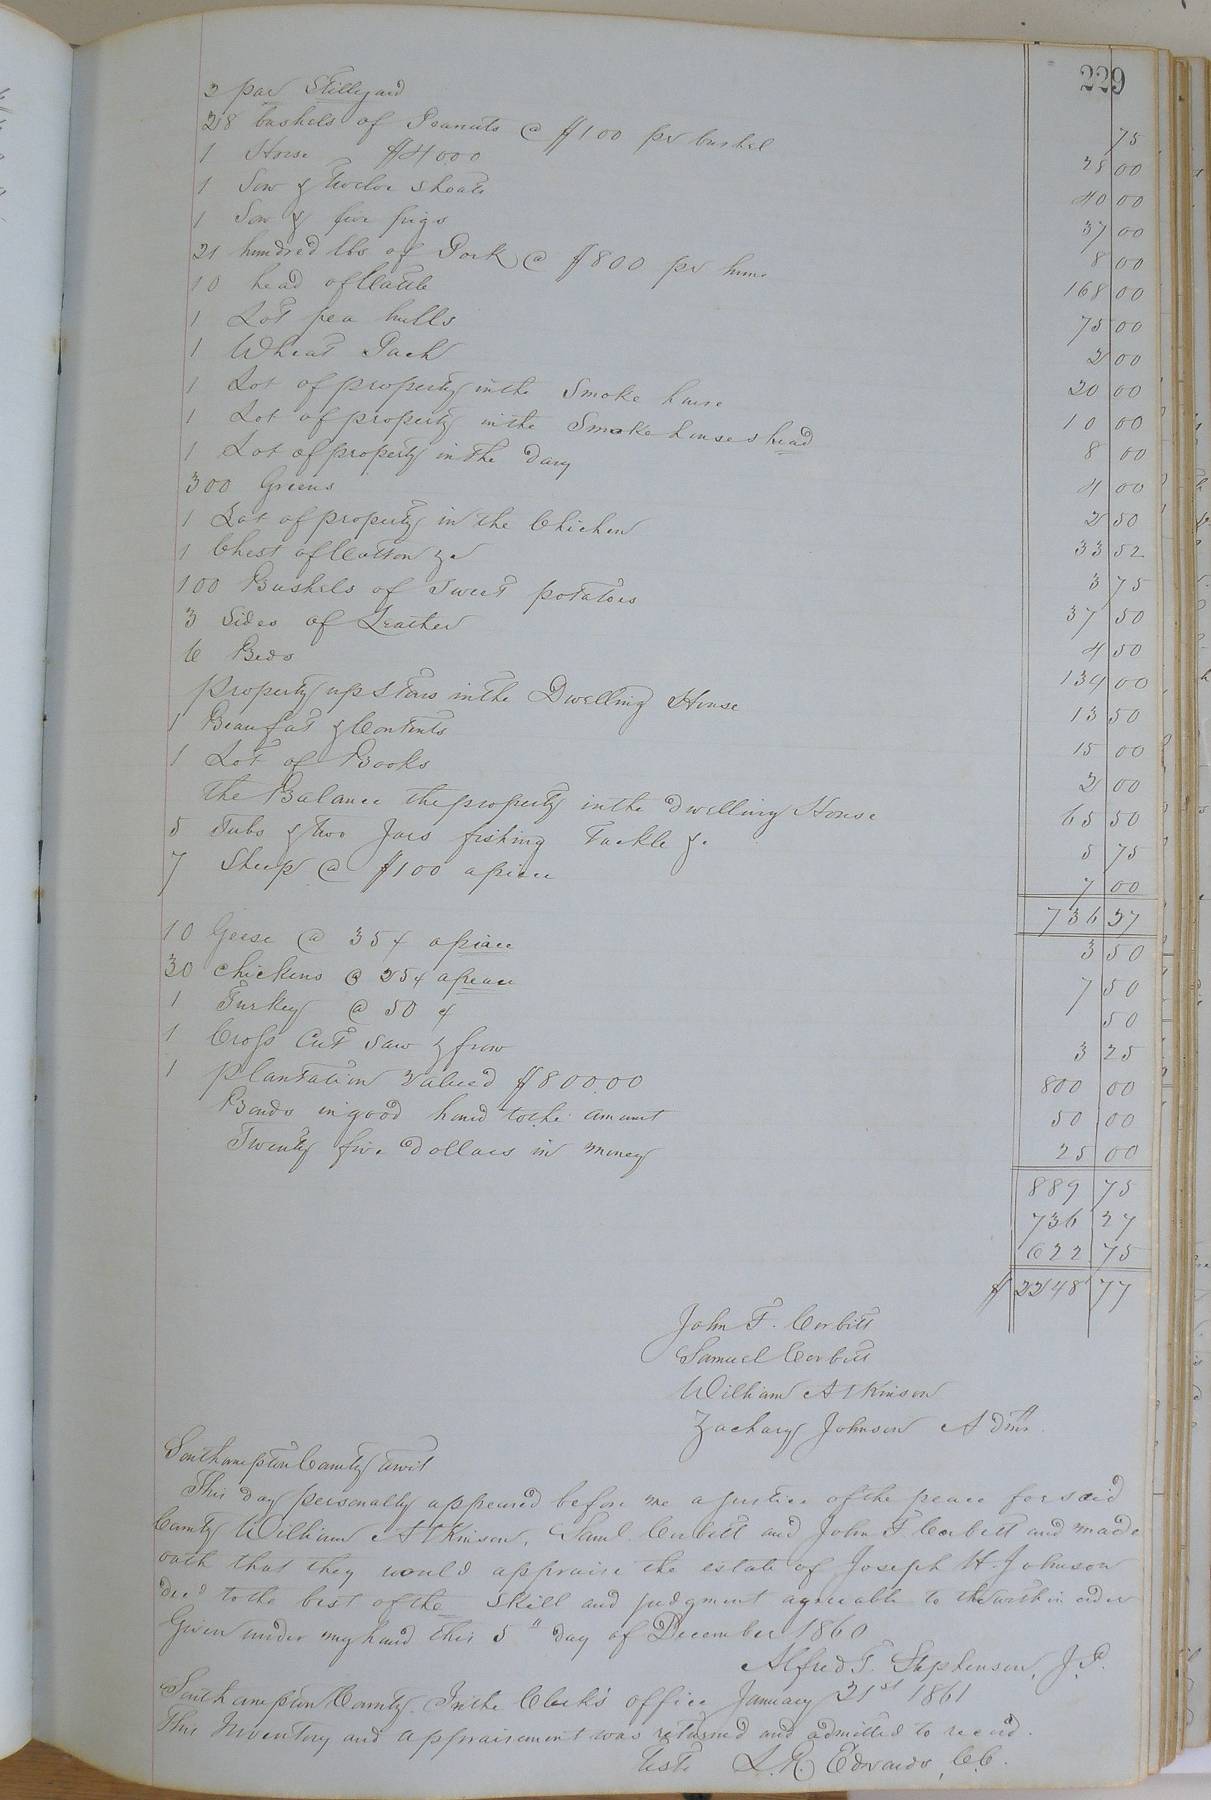 229
2 par Stillyard 75
28 bushels of Peanuts @ $100 pr bushel 28 00
1 Horse $4000 40 00
1 Sow & twelve shoats 37 00
1 Sow & five pigs 8 00
21 hundred lbs of Pork @ $800 pr hun. 168 00
10 head of Cattle 75 00
1 Lot pea hulls 2 00
1 Wheat Pack 20 00
1 Lot of property in the Smoke house 10 00
1 Lot of property in the Smoke house shead 8 00
1 Lot of property in the dary 4 00
300 Greens 2 50
1 Lot of property in the Chichen 33 52
1 Chest of Cotton &c 3 75
100 Bushels of sweet potatoes 37 50
3 Sides of Leather 4 50
6 Beds 134 00
property up Stars in the Dwelling House 13 50
1 Beaufat & Contents 15 00
1 Lot of Books 2 00
the Balance the property in the dwelling House 65 50
5 Tubs & two Jars fishing tackle &. 5 75
7 Sheep @ $100 apiece 7 00
736 27
10 Geese @ 35¢ apiece 3 50
30 chickens @ 25¢ apeace 7 50
1 Turkey @ 50¢ 50
1 Cross Cut Saw & frow 3 25
1 plantation valued $80000 800 00
Bonds in good hand to the amount 50 00
Twenty five dollars in money 25 00
889 75
736 27
622 75
$2248 77
John F. Corbitt
Samuel Corbitt
William Atkinson
Zachary Johnson Admr
Southampton County towit
This day personally appeared before me a justice of the peace for said
County William Atkinson, Saml Corbitt and John F Corbitt and made
oath that they would appraise the estate of Joseph H. Johnson
decd to the best of the skill and judgment agreeable to the within order
Given under my hand this 5th day of December 1860
Alfred T. Stephenson, J.P.
Southampton County. In the Clerk's office January 21st 1861
This Inventory and appraisement was returned and admitted to record.
Teste L. R. Edwards, C.C.